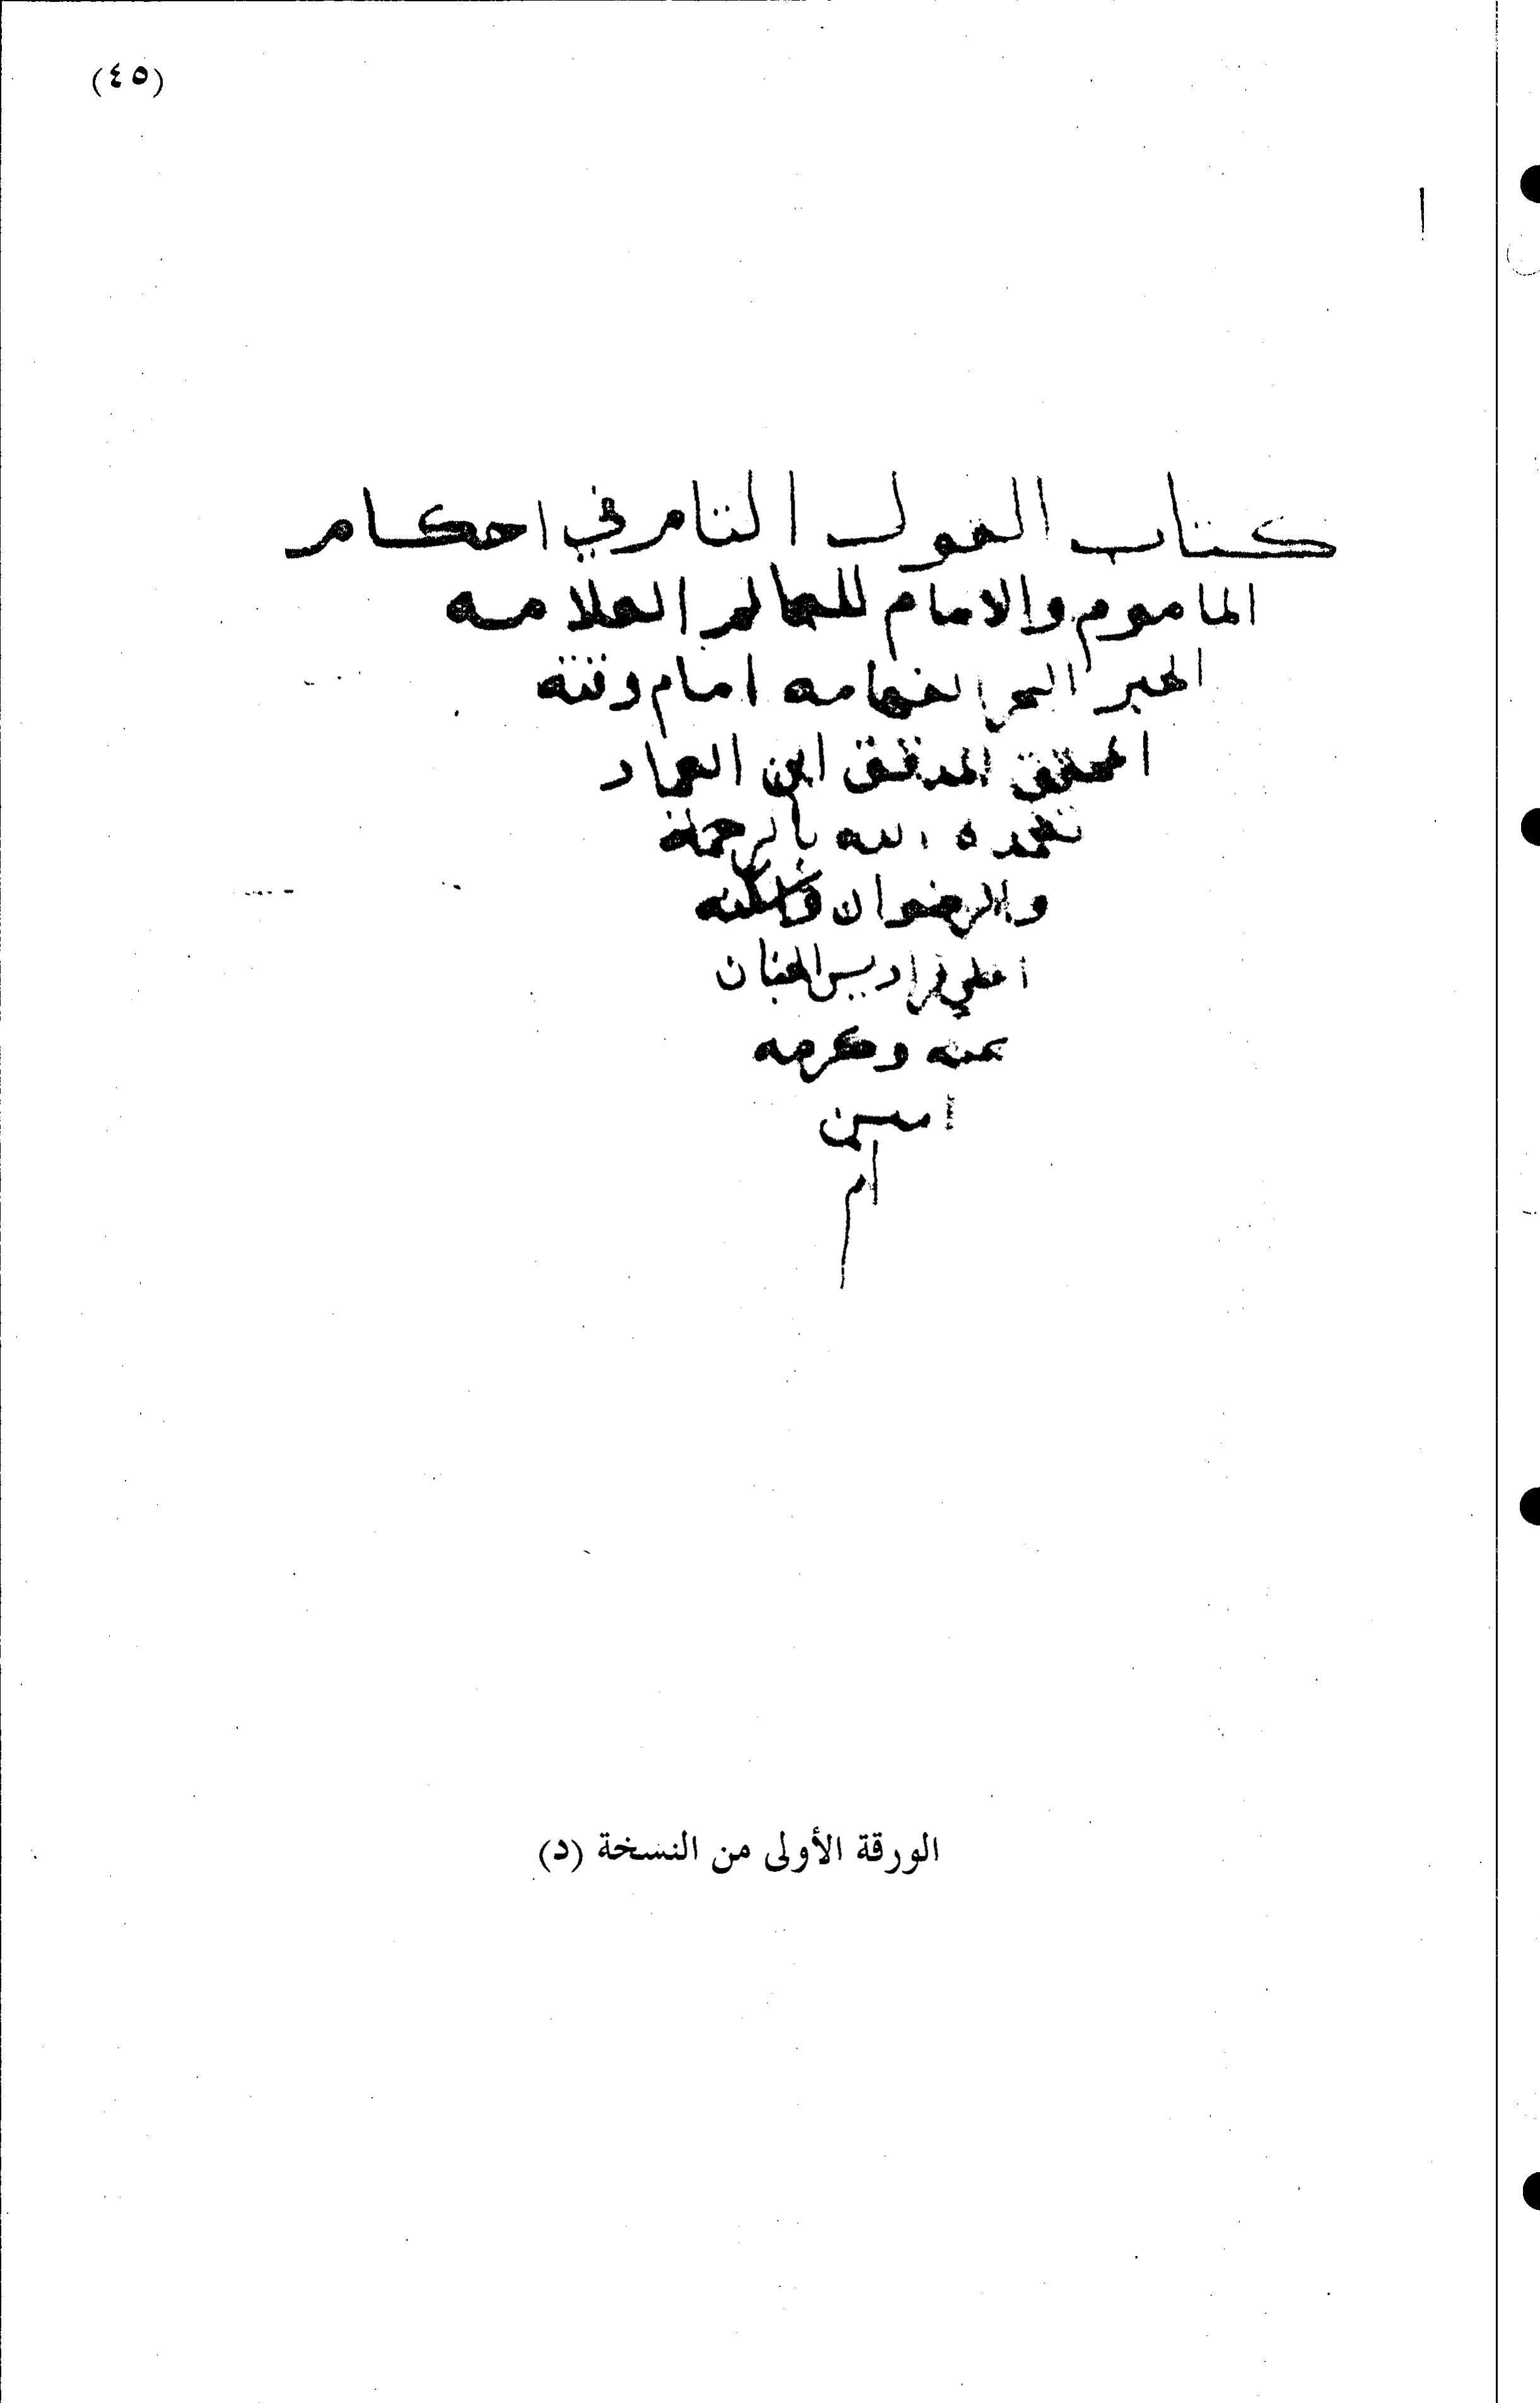 (٤٥)
كتاب القول التام في احكام
الماموم والامام للعالم العلامه
الحبر البحر الفهامه امام وقته
المحقق المدقق ابن العماد
تغمده الله بالرحمة
والرضوان واسكنه
اعلي فراديس الجنان
بمنه وكرمه
امين
ام
الورقة الأولى من النسخة (د)